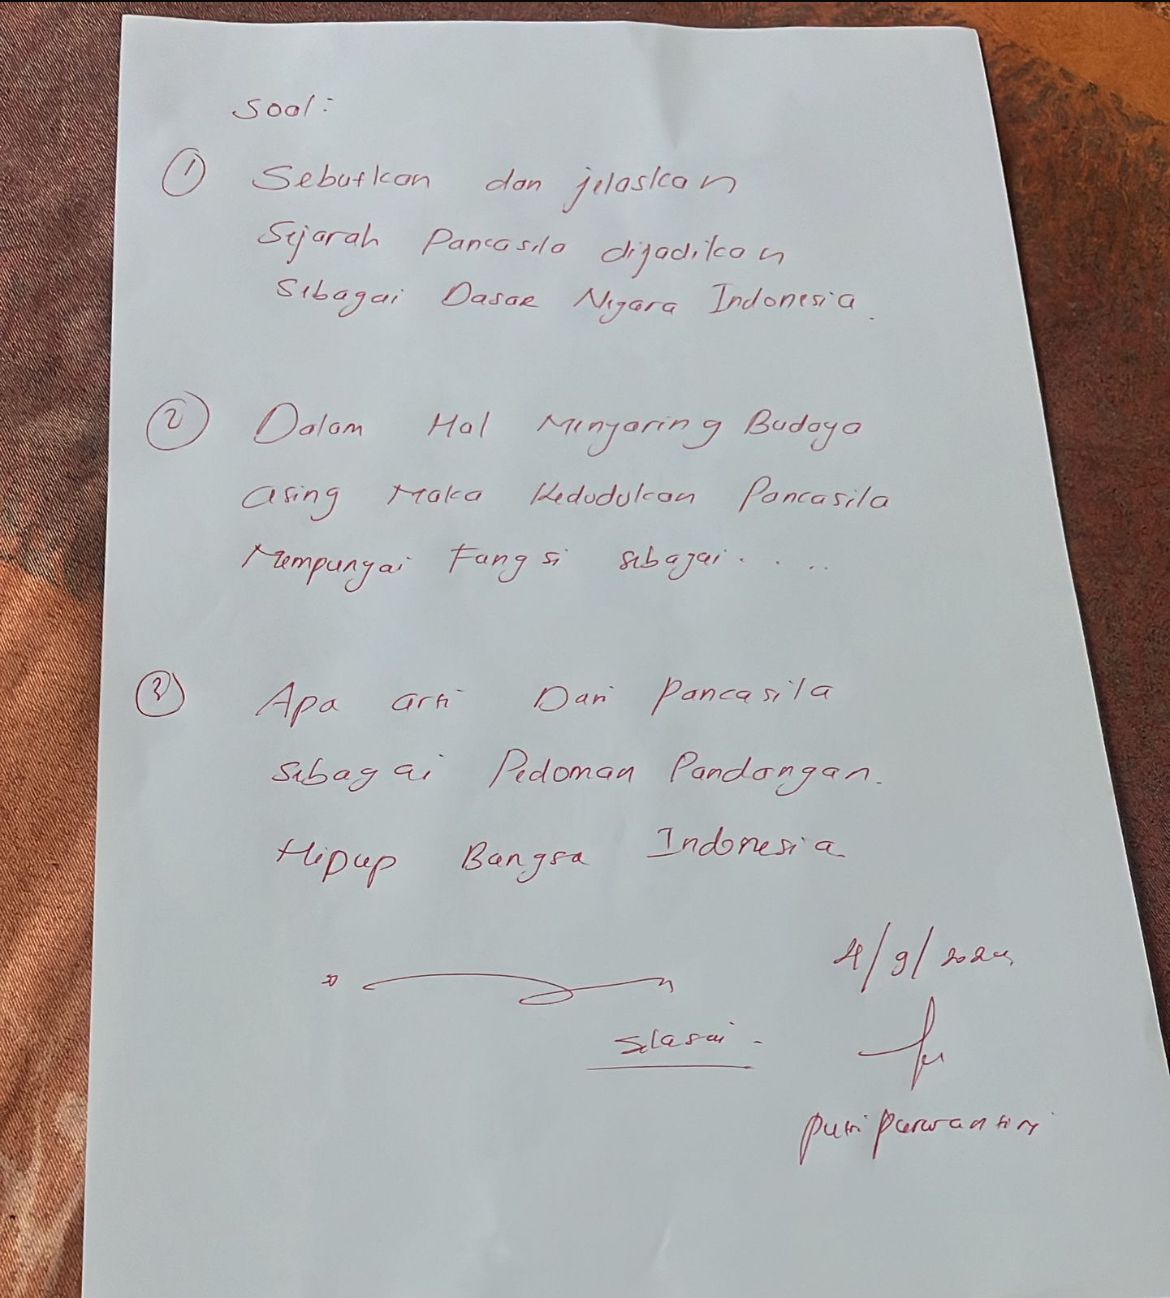 Soal:
① Sebutkan dan jelaskan
Sejarah Pancasila dijadikan
Sebagai Dasar Negara Indonesia.
② Dalam Hal Menyaring Budaya
asing Maka Kedudukan Pancasila
Mempunyai Fungsi sebagai.....
③ Apa arti Dari Pancasila
sebagai Pedoman Pandangan.
Hidup Bangsa Indonesia
4/9/2024
Selasai -
Putri Purwantiri